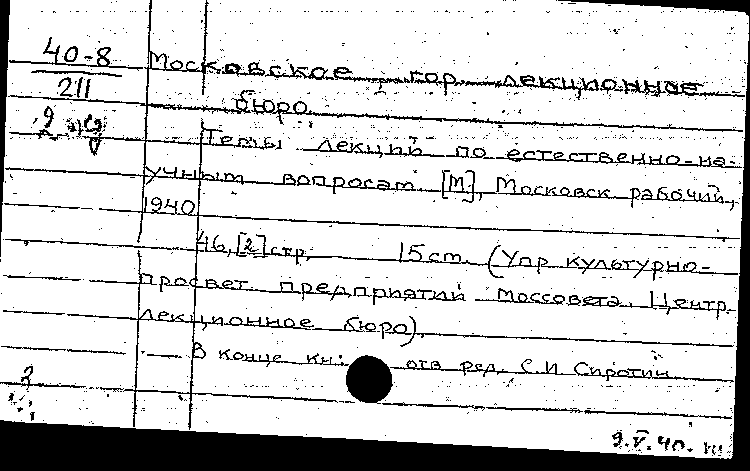 40-8
211
Московское гор. лекционное
бюро
Темы лекций по естественно-на-
учным вопросам [М.], Московск. рабочий,
1940
46,[2] стр. 15 см. (Упр культурно-
просвет. предприятий Моссовета. Центр.
лекционное бюро).
В конце кн: отв ред. С.И. Сиротин
9.V.40.